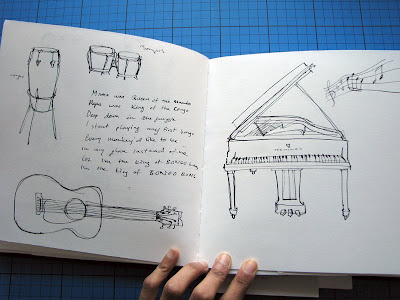 Mama was Queen of the Mambo
Papa was King of the Congo
Deep down in the jungle
I start playing my first bongo
Every monkey'd like to be
in my place instead of me
Cos I'm the king of BONGO baby
I'm the king of BONGO BONG